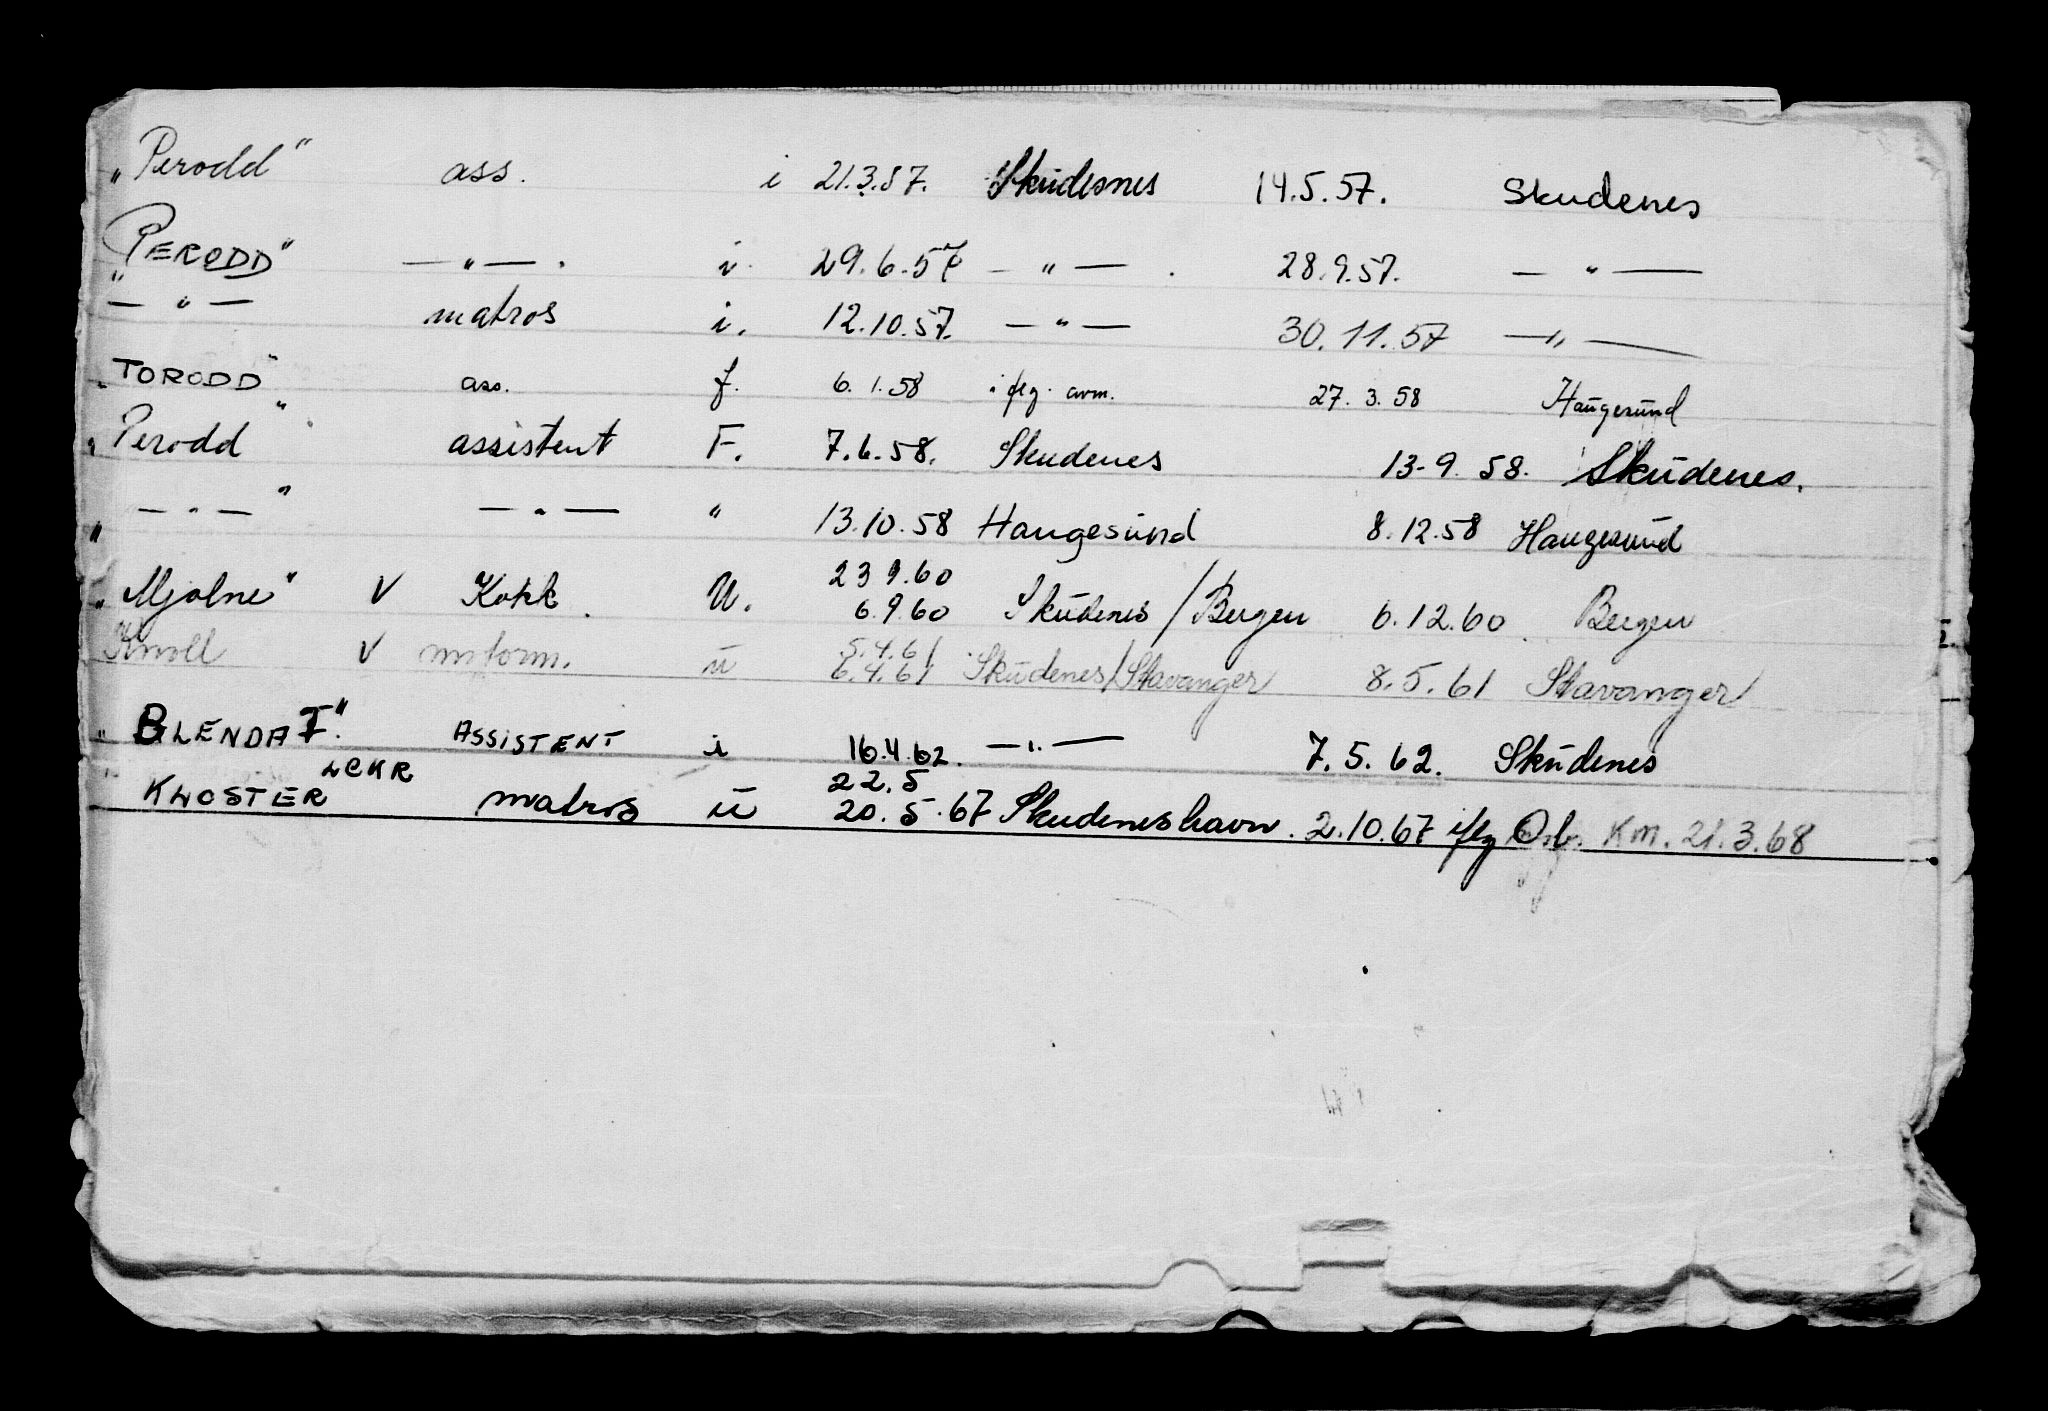 "Perodd" ass. i 21.3.57. Skudesnes 14.5.57. Skudenes
"PERODD" — " — . i. 29.6.57 — " — . 28.9.57. — " —
— " — matros i. 12.10.57. — " — 30.11.57 — " —
"TORODD" ass. f. 6.1.58 i flg. avm. 27.3.58 Haugesund
"Perodd" assistent F. 7.6.58. Skudenes 13-9.58. Skudenes.
" — " — " — " — " 13.10.58 Haugesund 8.12.58 Haugesund
23 9.60
"Mjølne" V Kokk. U. 6.9.60 Skudenes/Bergen 6.12.60 Bergen
5.4.61
"Knoll V u 6.4.61 Skudenes/Stavanger 8.5.61 Stavanger
"BLENDA I." ASSISTENT i 16.4.62. — " — 7.5.62. Skudenes
LCKR 22.5
KLOSTER matros u 20.5.67 Skudeneshavn. 2.10.67 iflg Km. 21.3.68